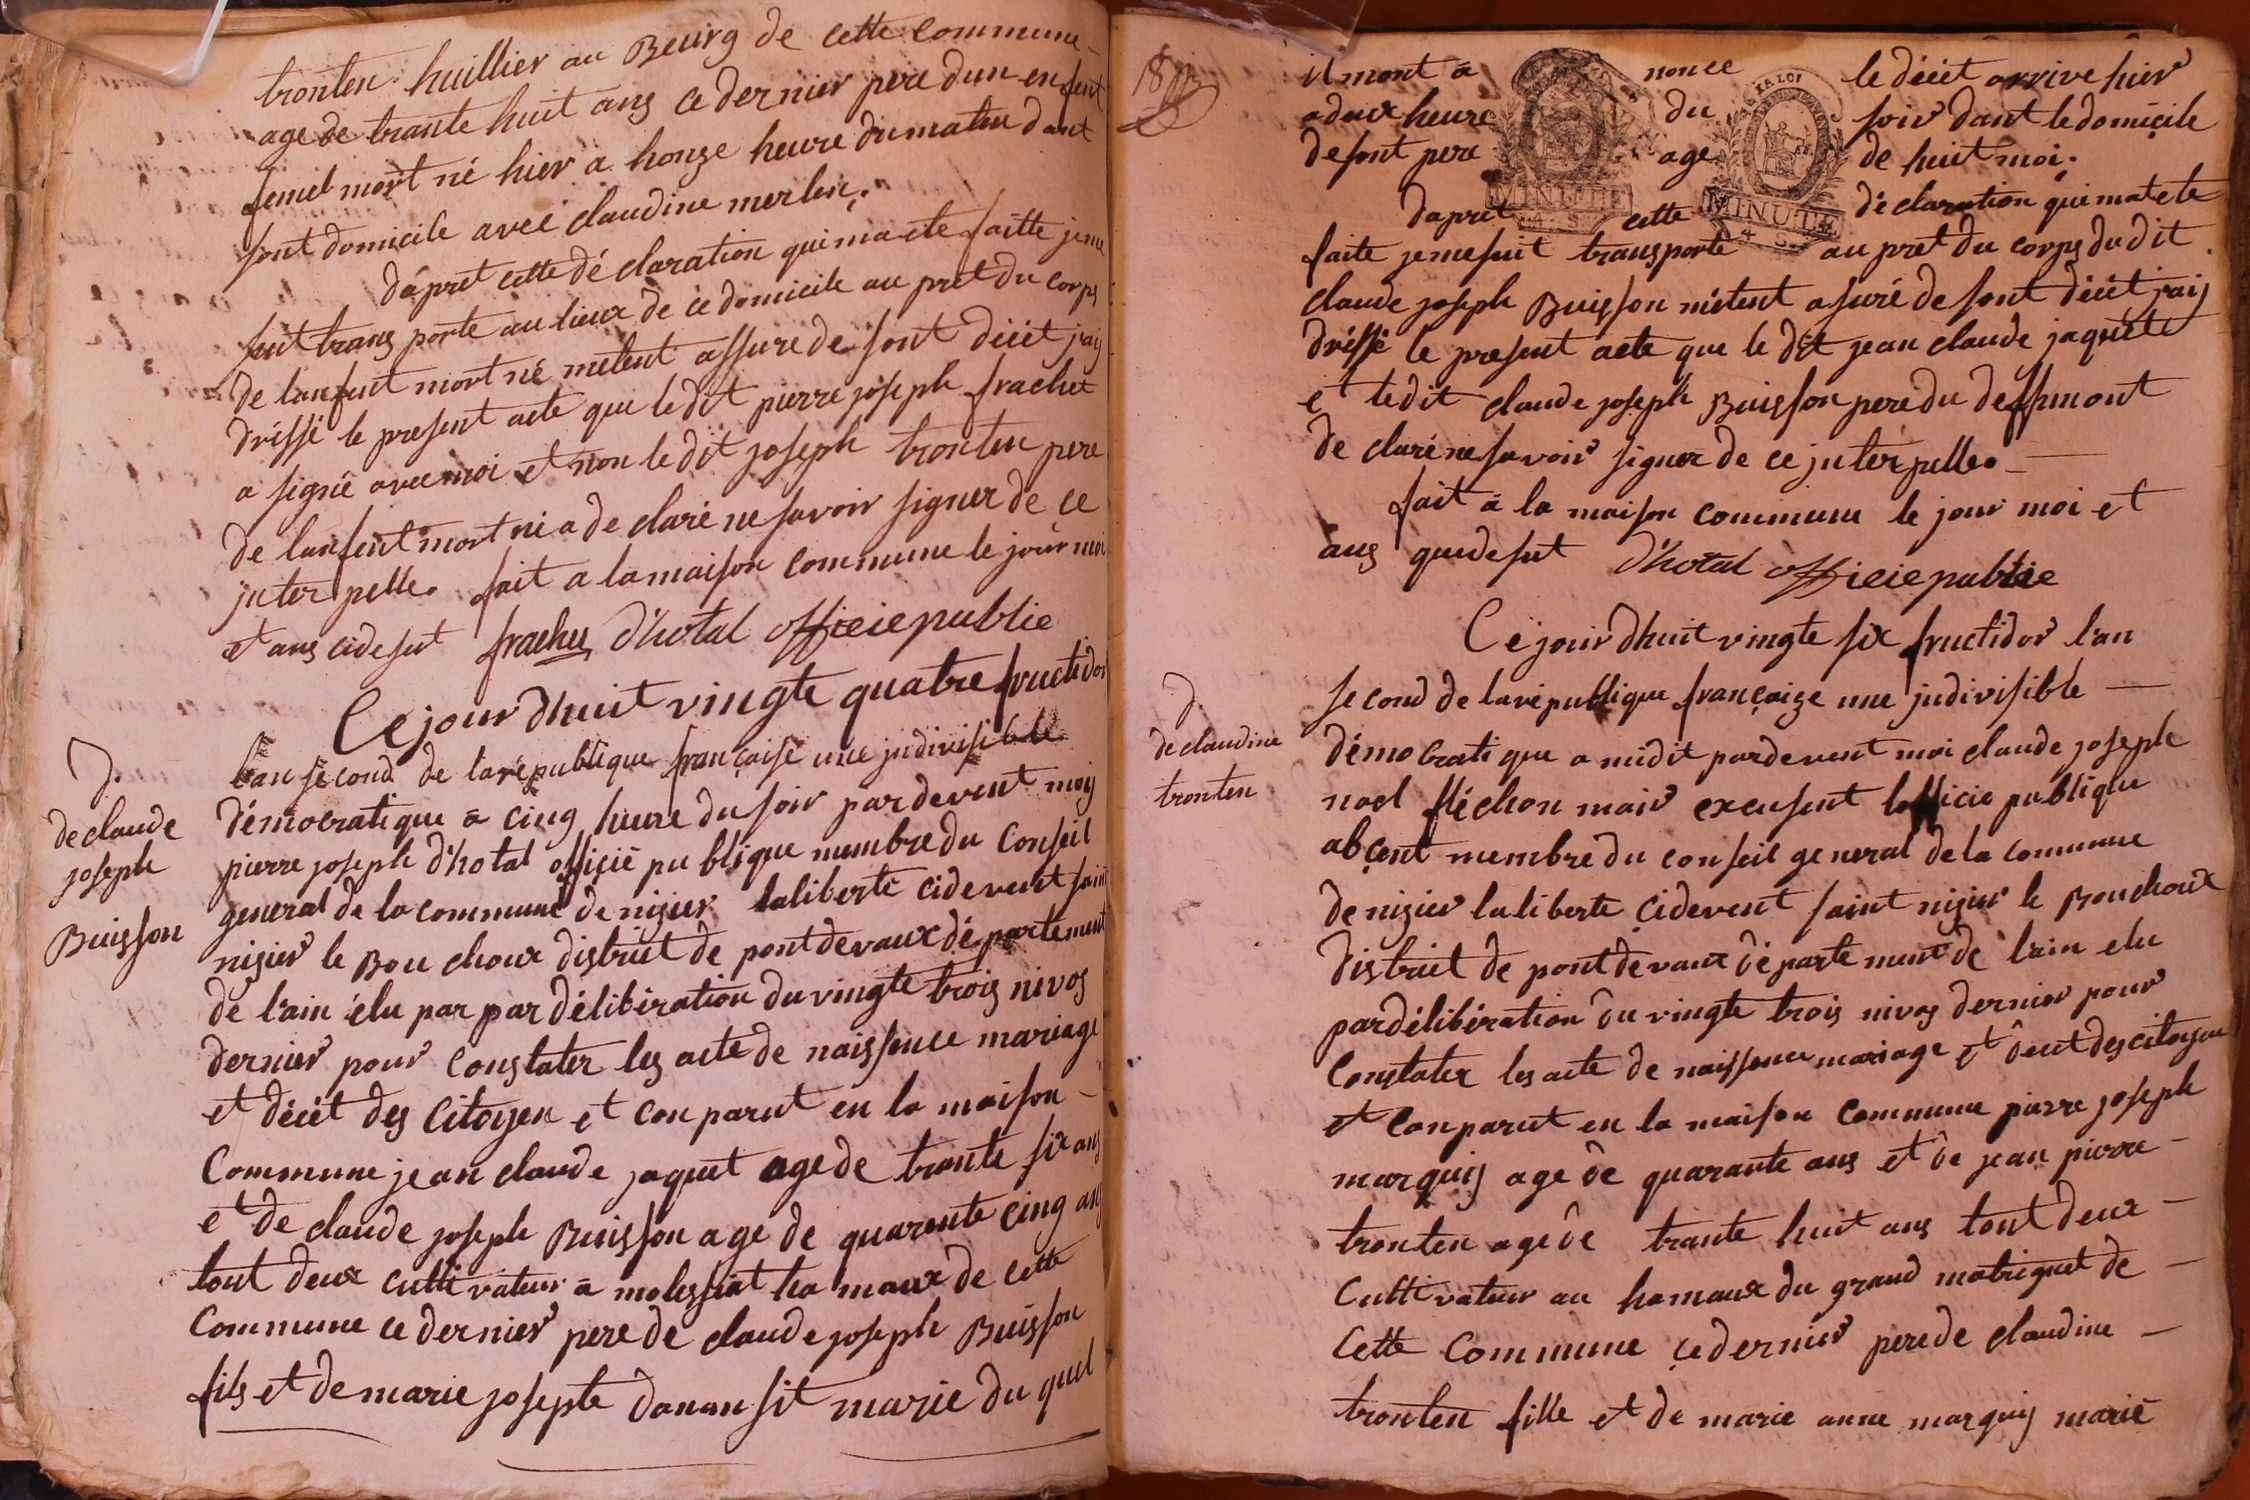 tronten huillier au Beurg de cette commune
age de trante huit ans ce dernier pere dun enfent
femel mort né hier a honze heure du maten dant
sont domicile avec claudine merlen.
dapret cette déclaration qui ma ete faitte je me
suit trans porte au lieux de ce domicile au pret du corps
de lanfent mort né metent assure de sont décét jaij
dréssé le present acte que le dit pierre joseph frachet
a signé avec moi et non le dit joseph tronten pere
de lanfent mort né a de claré ne savoir signer de ce
juter pelle. fait a la maison commune le jour moi
et ans cidesut frachet d'hotal officie publie
Ce jour dhuit vingte quatre fructidor
lan second de la république française une judivisible
démocratique a cinq heure du soir par devent moij
pierre joseph d'hotal officié publique membre du Conseil
general de la commune de nizier laliberté cidevent saint
nizier le Bou choux distrit de pontdevaux département
de l'ain élu par par délibération du vingte trois nivos
dernier pour constater les acte de naissence mariage
et décét des citoyen et con parut en la maison
Commune jean claude jaquet age de trante six ans
et de claude joseph Buisson age de quarente cinq ans
tout deux culti vateur a molessiat ha maux de cette
Commune ce dernier pere de claude joseph Buisson
fils et de marie josepte danansit marie du quel
d.
de claude
joseph
Buisson
il mont a nonce le décét arrive hier
a deux heure du soir dant le domicile
de sont pere age de huit moi.
dapret cette déclaration qui mat ete
faite je me suit transporté au pret du corps du dit
claude joseph Buisson métent asuré de sont décét jaij
dréssé le present acte que le dit jean claude jaquete
et ledit claude joseph Buisson pere du deffunt ont
de claré ne savoir signer de ce juter pelle.
fait a la maison commune le jour moi et
ans que desut d'hotal officie publie
MINUTE
4. S.
LA LOI
MINUTE
4. S.
Ce jour dhuit vingte six fructidor l'an
second de la république françaize une judivisible
démocratique a midit par devent moi claude joseph
noel fléchon mair excusent lofficie publique
abçent membre du conseil general de la commune
de nizier laliberte çidevent saint nizier le Bouchoux
distrait de pontdevaux département de l'ain elu
par délibération du vingte trois nivos dernier pour
Constater les acte de naissence mariage et décét des citoyen
et conparut en la maison commune pierre joseph
marquis age de quarante ans et de jean pierre
tronten age de trante huit ans tout deux
Cultivateur au hamaux du grand matriguet de
Cette commune ce dernier pere de claudine
tronten fille et de marie anne marquis marié
d.
de claudine
tronten